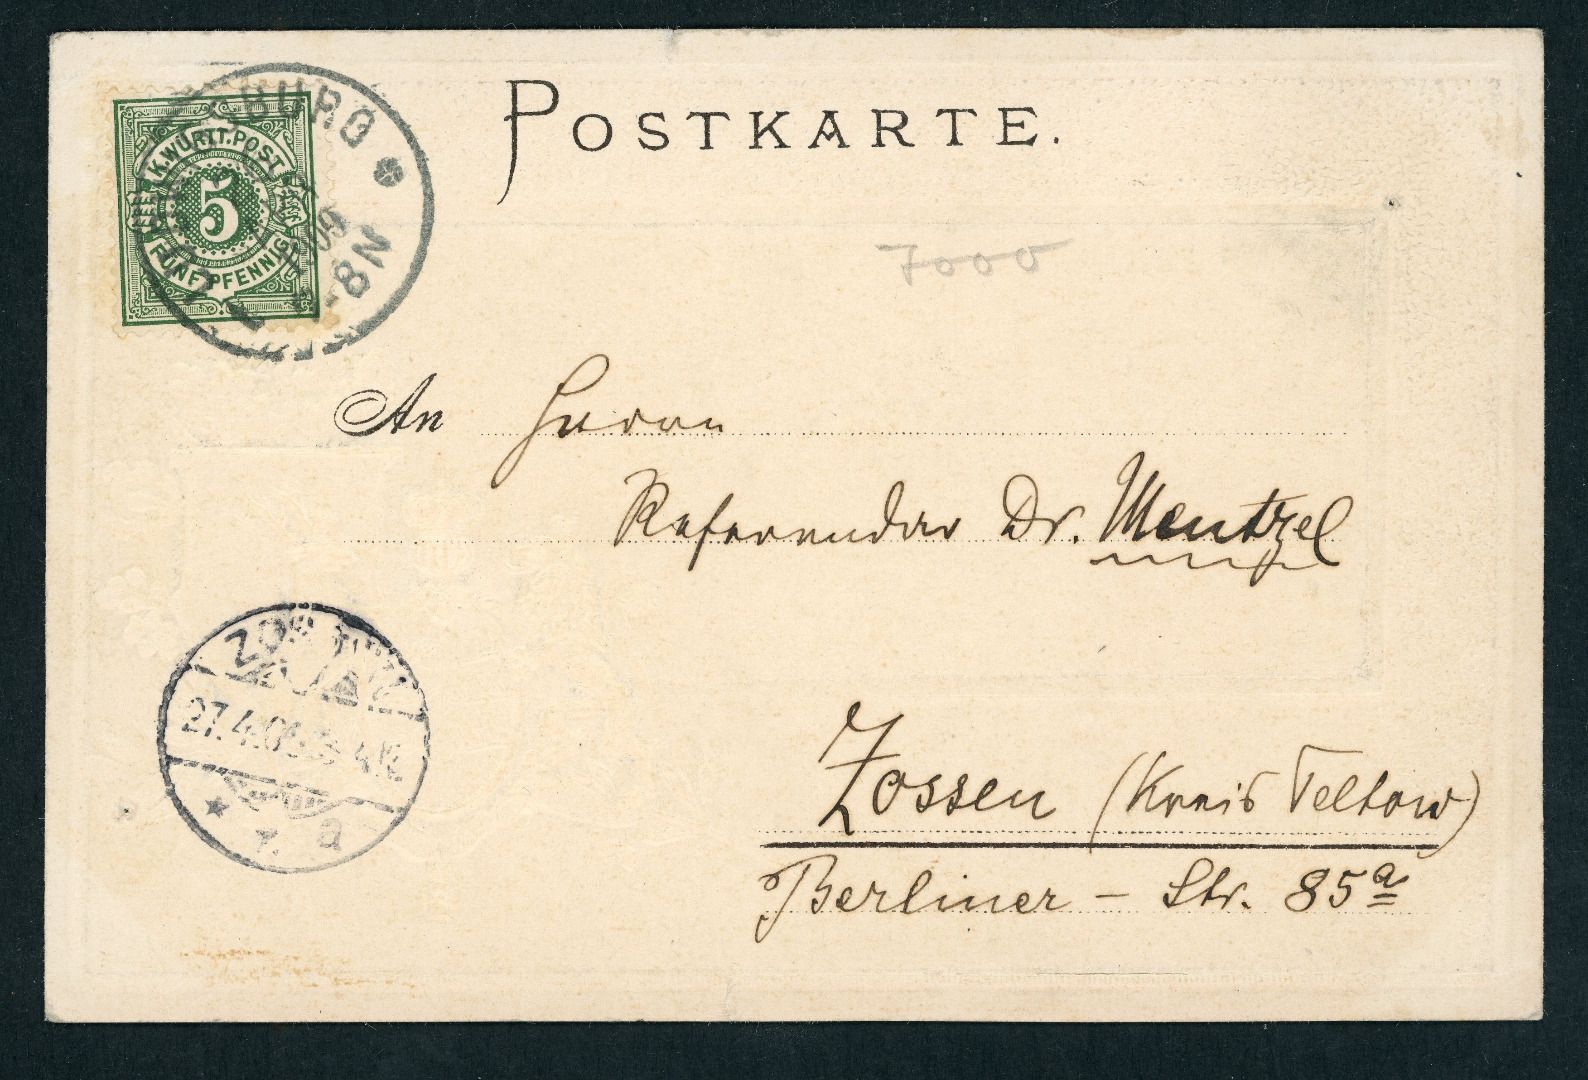 POSTKARTE.
K.WÜRTT.POST
5
FÜNF PFENNIG
BURG
8N
7000
An Herrn
Referendar Dr. Mentzel
ZOSSEN
27.4.06
* a
Zossen (Kreis Teltow)
Berliner - Str. 85a